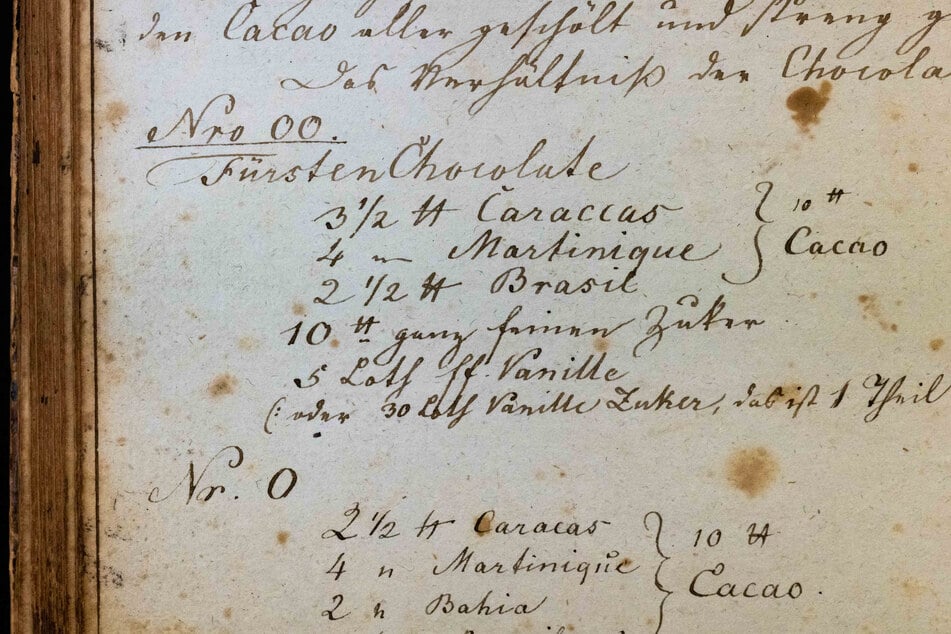 den Cacao aller geschält und streng g
Das Verhältniß der Chocola
Nro 00.
Fürsten Chocolate
3 1/2 ℔ Caraccas
4 " Martinique
2 1/2 ℔ Brasil
10 ℔
Cacao
10 ℔ ganz feinen Zuker
5 Loth ff. Vanille
(: oder 30 Loth Vanille Zuker, das ist 1 Theil
Nr. 0
2 1/2 ℔ Caracas
4 " Martinique
2 " Bahia
10 ℔
Cacao.